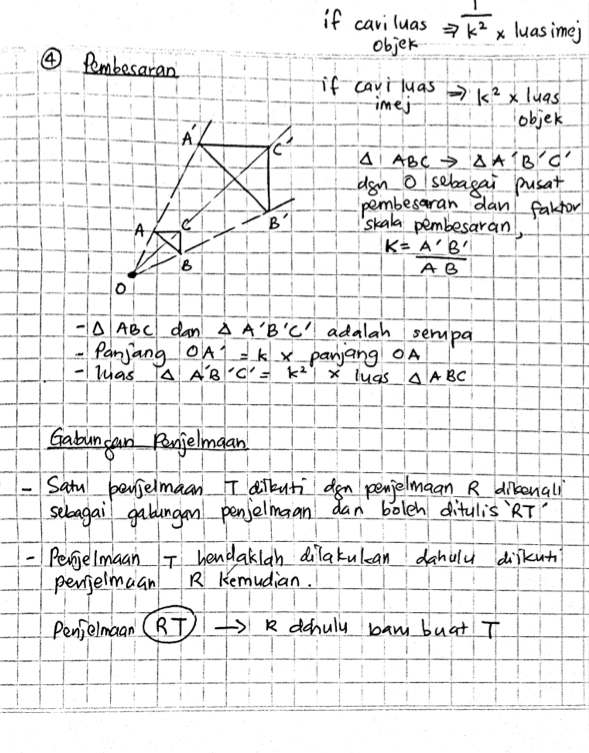 if cari luas objek ⇒ 1/k² × luas imej
④ Pembesaran
if cari luas imej ⇒ k² × luas objek
A'
C'
A
C
B'
B
O
Δ ABC → Δ A'B'C'
dgn O sebagai pusat
pembesaran dan faktor
skala pembesaran,
K = A'B'/AB
- Δ ABC dan Δ A'B'C' adalah serupa
- Panjang OA' = k × panjang OA
- luas Δ A'B'C' = k² × luas Δ ABC
Gabungan Penjelmaan
- Satu penjelmaan T diikuti dgn penjelmaan R dikenali
sebagai gabungan penjelmaan dan boleh ditulis 'RT'
- Penjelmaan T hendaklah dilakukan dahulu diikuti
penjelmaan R kemudian.
Penjelmaan RT → R dahulu baru buat T